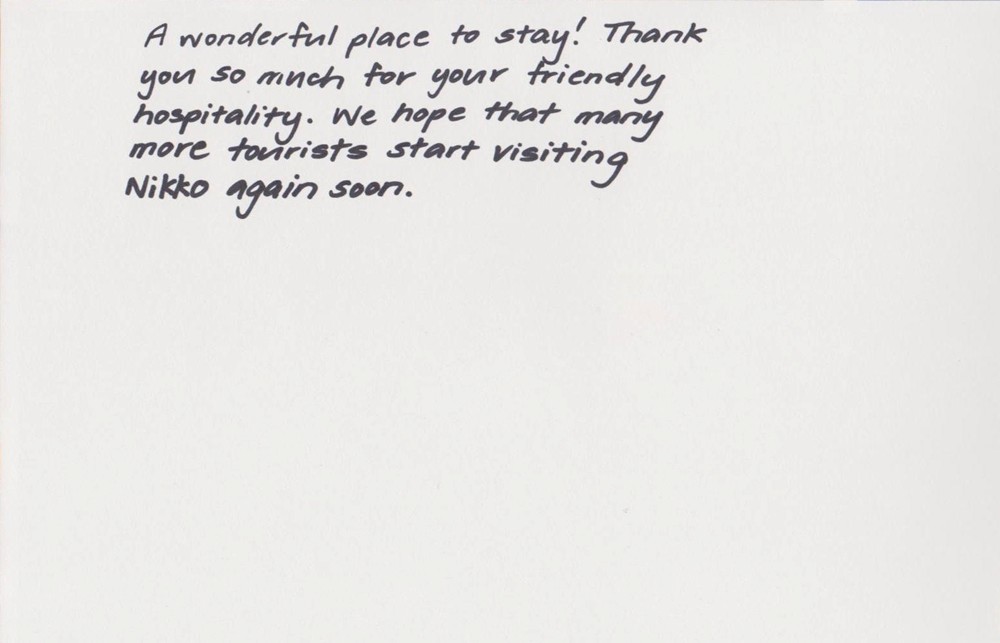 A wonderful place to stay! Thank
you so much for your friendly
hospitality. We hope that many
more tourists start visiting
Nikko again soon.